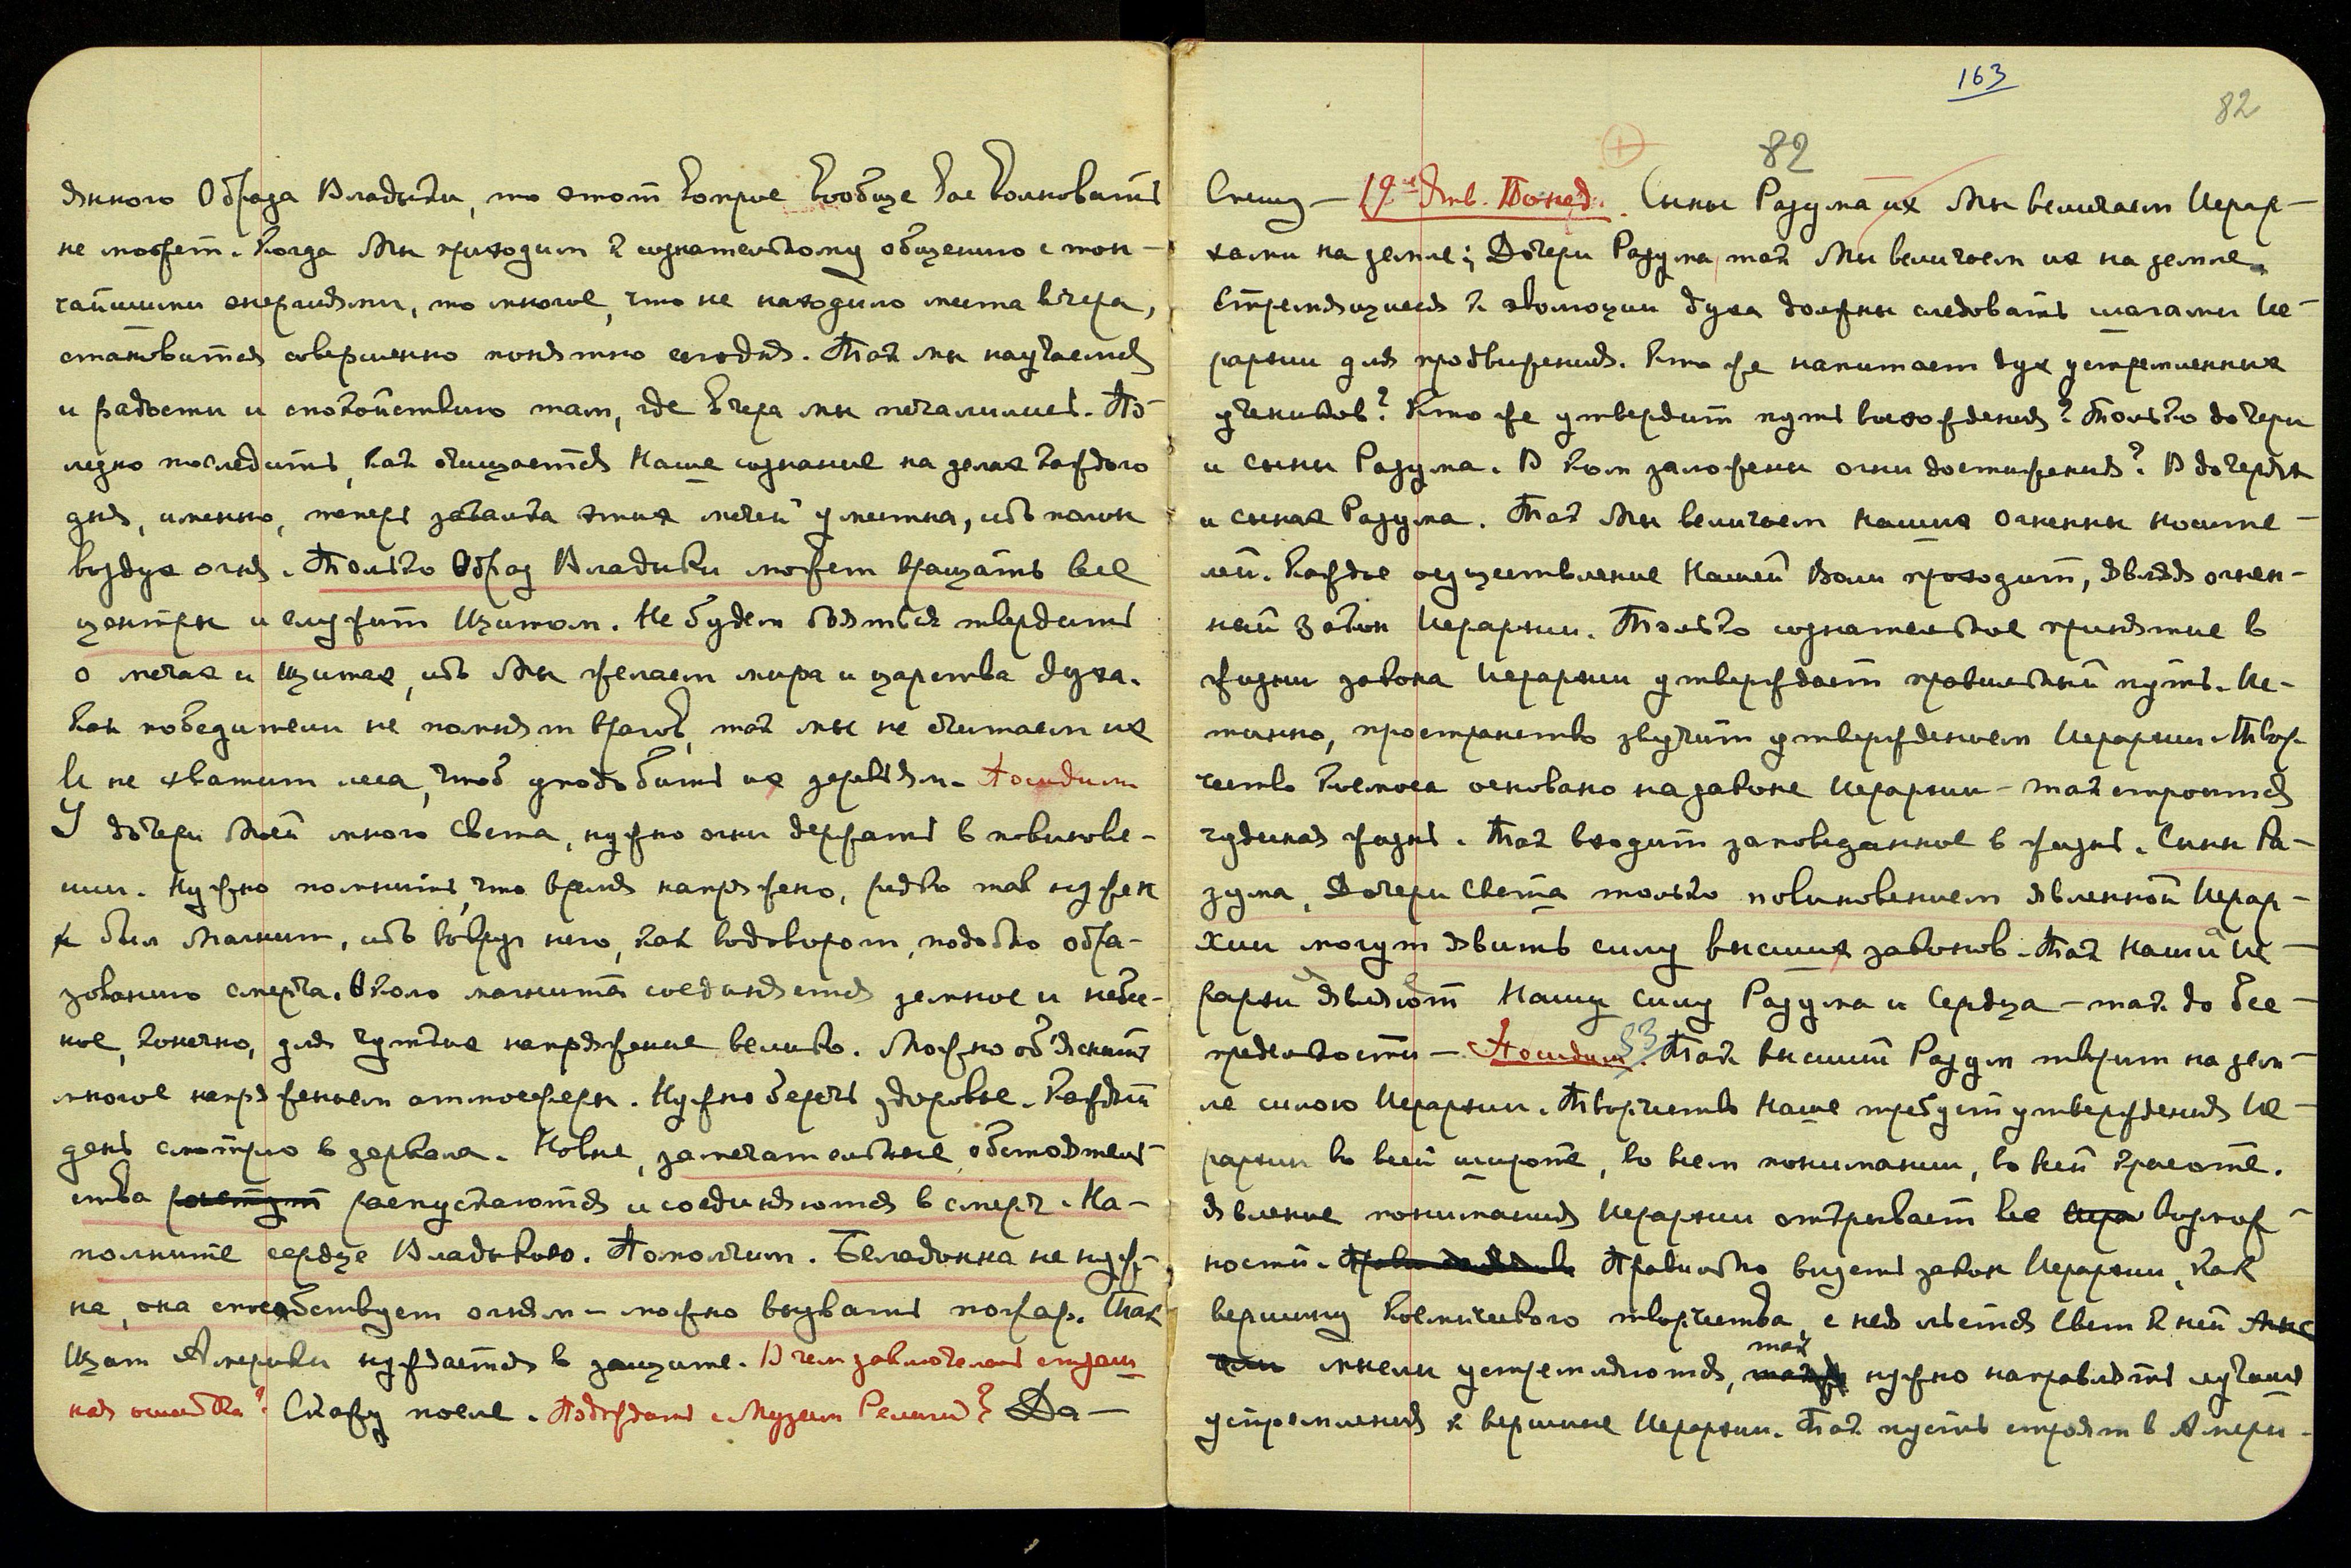 янного Образа Владыки, то этот вопрос вообще Вас волновать
не может. Когда Мы приходим к сознательному общению с тон-
чайшими энергиями, то многое, что не находило места вчера,
становится совершенно понятно сегодня. Так мы научаемся
и радости и спокойствию там, где вчера мы печалились. По-
лезно последить, как очищается наше сознание на делах каждого
дня, именно, теперь закалка этих мечей уместна, ибо полон
воздух огня. Только Образ Владыки может вращать все
центры и служит Щитом. Не будем бояться твердить
о мечах и щитах, ибо Мы желаем мира и царства духа.
Как победители не помнят врагов, так мы не считаем их
И не хватит леса, чтоб уподобить их деревьям. Посидим
У дочери Моей много света, нужно огни держать в повинове-
нии. Нужно помнить, что время напряжено, редко так нужен
был Магнит, ибо вокруг него, как водоворот, подобно обра-
зованию смерча. Около магнита соединяется земное и небес-
ное, конечно, для чутких напряжение велико. Можно объяснить
многое напряжением атмосферы. Нужно беречь здоровье. Каждый
день смотрю в зеркала. Новые, замечательные обстоятель-
ства растут распускаются и соединяются в смерч. На-
полните сердце Владыкою. Помолчим. Беладонна не нуж-
на, она способствует огням – можно вызвать пожар. Так
Щит Америки нуждается в защите. В чем заключалась страш
ная ошибка? Скажу после. Подождать с Музеем Религий? Да –
163
82
82
Спешу – 19ое Янв. Понед. Сыны Разума их Мы величаем Иерар-
хами на земле; Дочери Разума, так Мы величаем их на земле.
Стремящиеся к эволюции духа должны следовать шагами Ие-
рархии для продвижения. Кто же напитает дух устремленных
учеников? Кто же утвердит путь восхождения? Только дочери
и сыны Разума. В ком заложены огни достижения? В дочерях
и сынах Разума. Так Мы величаем наших огненных носите-
лей. Каждое осуществление Нашей Воли проходит, являя огнен-
ный Закон Иерархии. Только сознательное принятие в
жизни закона Иерархии утверждает правильный путь. Ис-
тинно, пространство звучит утверждением Иерархии. Твор-
чество Космоса основано на законе Иерархии – так строится
чудная жизнь. Так входит заповеданное в жизнь. Сыны Ра-
зума, Дочери Света только повиновением явленной Иерар-
хии могут явить силу высших законов. Так наши Ие-
рархи являют Нашу силу Разума и Сердца – так до бес-
предельности – Посидим. 83 Так высший Разум творит на зем-
ле силою Иерархии. Творчество Наше требует утверждения Ие-
рархии во всей широте, во всем понимании, во всей красоте.
Явление понимания Иерархии открывает все возмож-
ности. Правильно видеть закон Иерархии, как
вершину Космического творчества, с нея льется Свет к ней
мысли устремляются, так нужно направлять лучшие
устремления к вершине Иерархии. Так пусть строят в Амери-